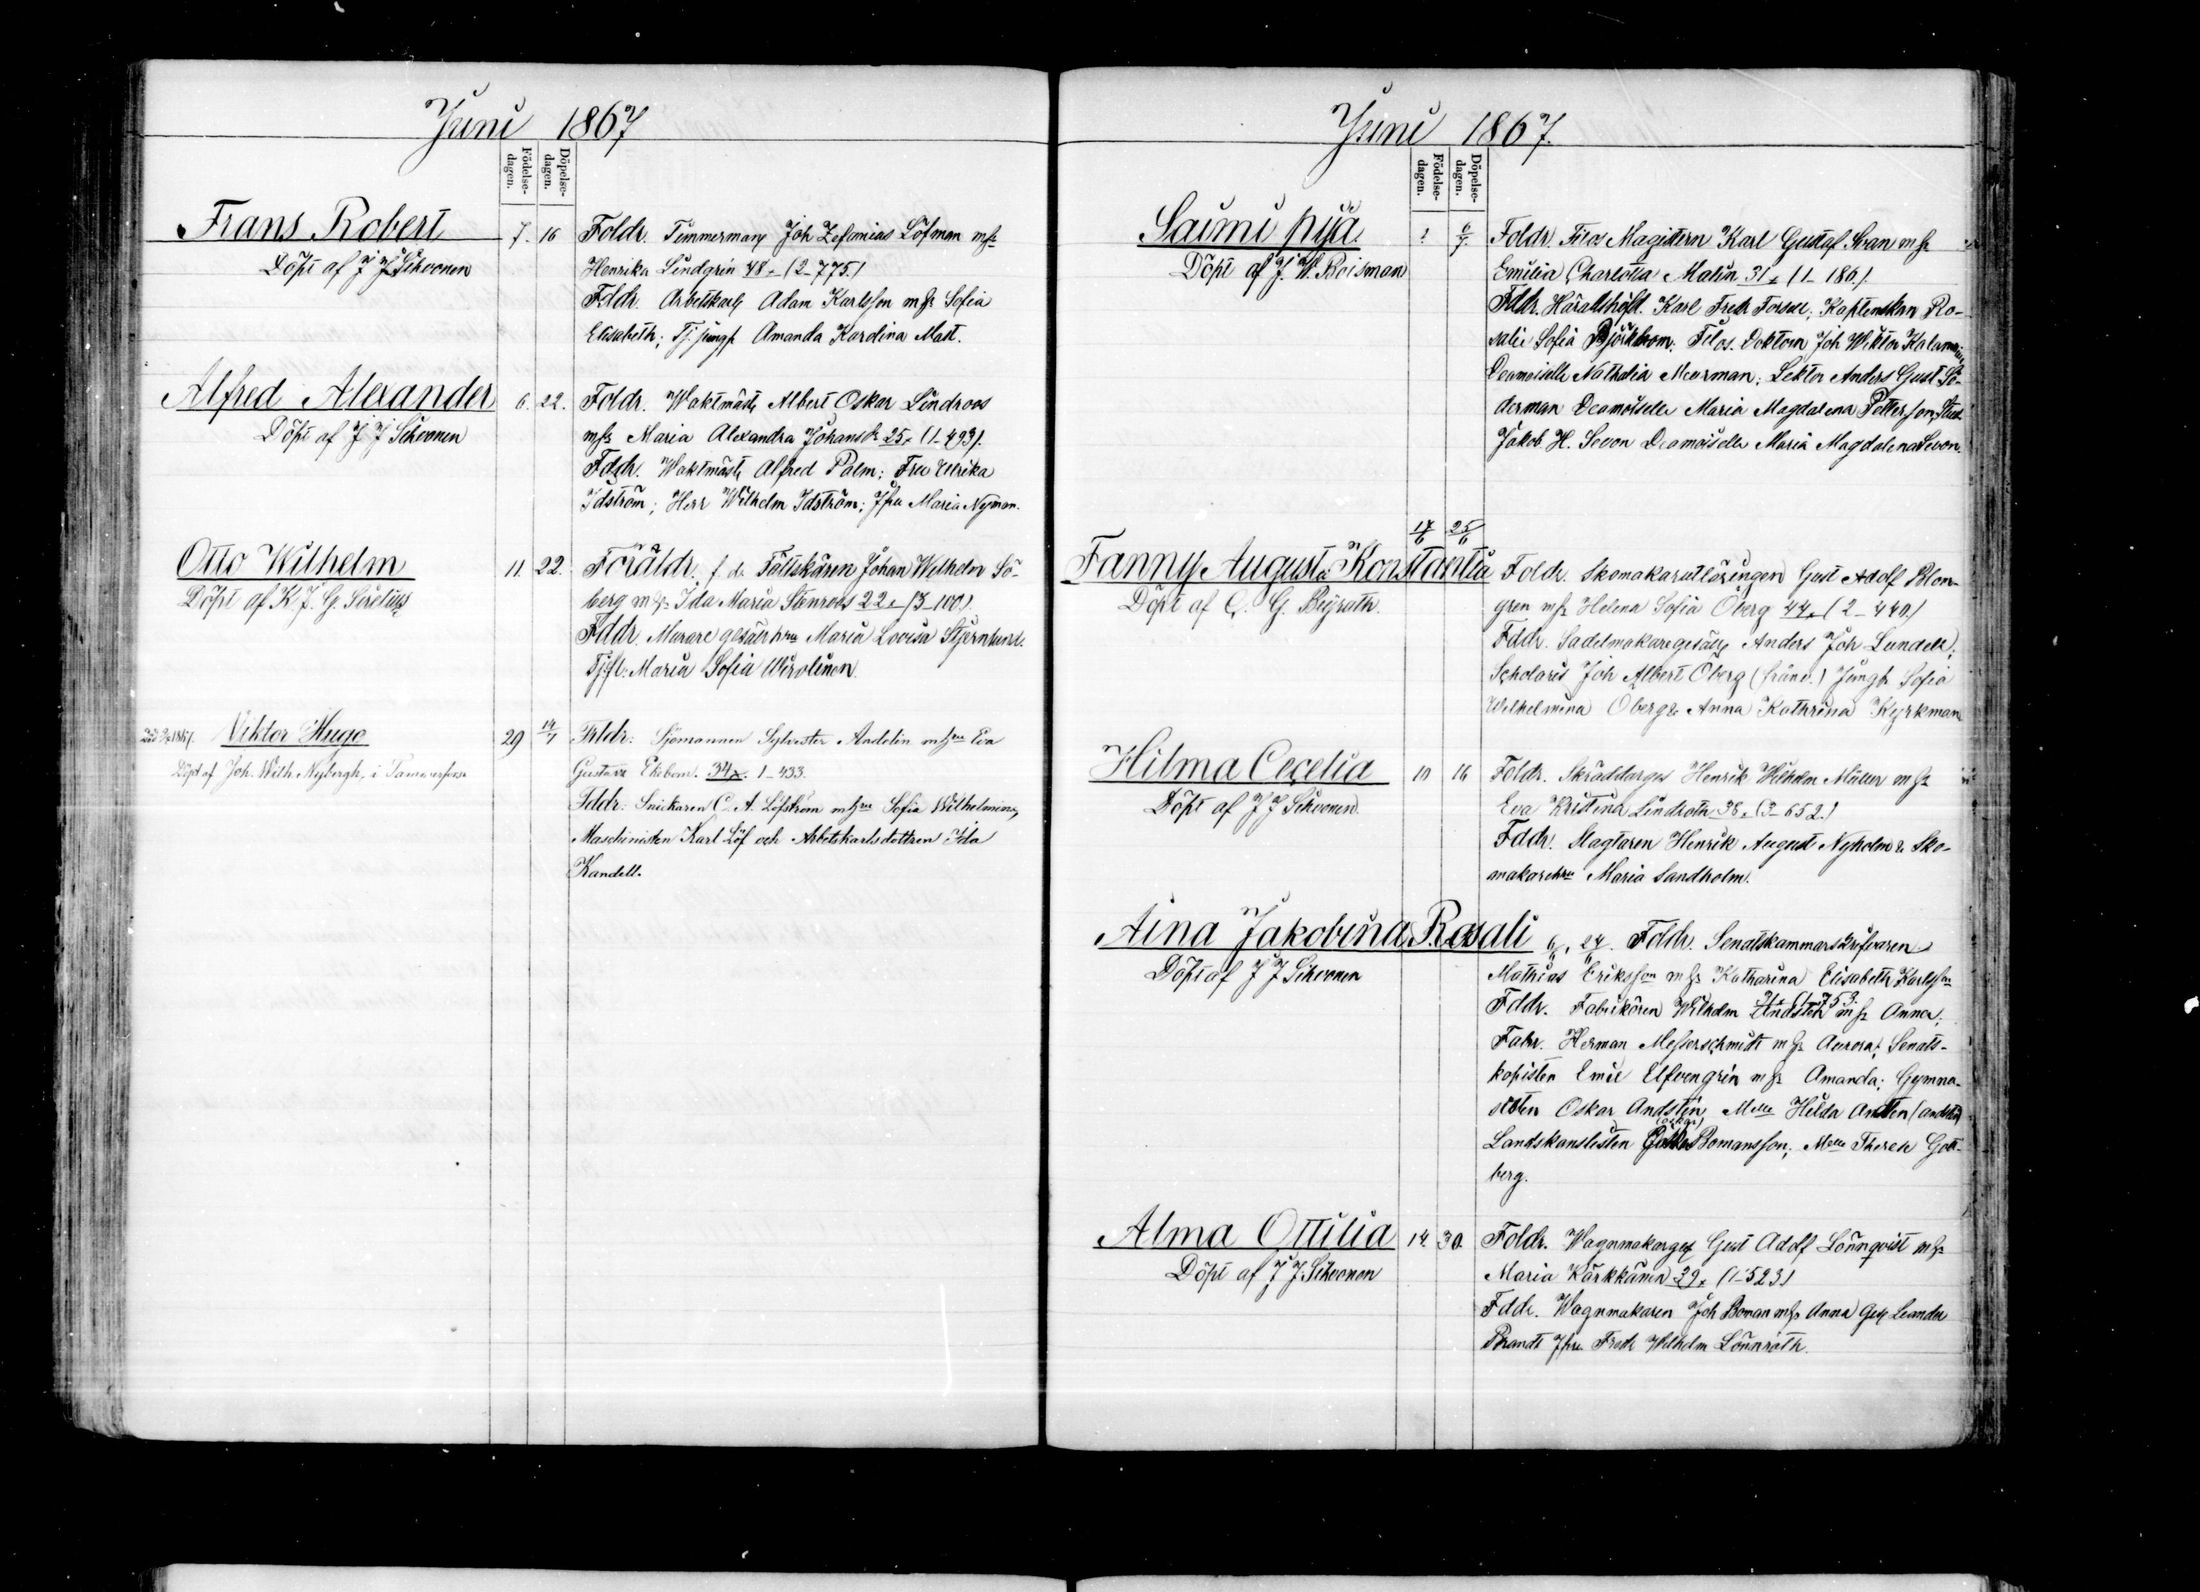 Juni 1867
Födelse-
dagen.
Döpelse-
dagen.
Frans Robert 7. 16
Döpt af J J Sihvonen
Foldr. Timmerman Joh Zefanias Löfman mh
Henrika Lindgrén 48. (2-775)
Fddr. Arbetskarl Adam Karlsson mh Sofia
Elisabeth; Tj. jungf. Amanda Karolina Matt.
Alfred Alexander 6. 22.
Döpt af J J Sihvonen
Foldr. Waktmäst Albert Oskar Lindroos
mh Maria Alexandra Johansdr 25. (1-493).
Fddr. Waktmäst Alfred Palm; Fru Ulrika
Idström; Herr Wilhelm Idström; Jfru Maria Nyman.
Otto Wilhelm 11. 22.
Döpt af K. J. G. Sirelius
Föräldr. f. d. Fältskären Johan Wilhelm Sö-
berg mh Ida Maria Stenroos 22. (3-100).
Fddr. Murare gesällhru Maria Lovisa Stjernlund.
Tj.fl. Maria Sofia Wirolinen.
Viktor Hugo 29 14/7
Döpt af Joh. Wilh. Nybergh, i Tammerfors
Frldr: Sjömannen Sylvester Andelin mhru Eva
Gustava Ekebom. 34. 1-433.
Fddr: Snickaren C. A. Löfström mhru Sofia Wilhelmina,
Maschinisten Karl Löf och Arbetskarlsdottren Ida
Kandell.
Juni 1867.
Födelse-
dagen.
Döpelse-
dagen.
Saimi Pyä. 6/7
Döpt af J. W. Boisman
Foldr. Filos Magistern Karl Gustaf Svan mh
Emilia Charlotta Malin 31. (1-186).
Fddr. Häradshöfd. Karl Fredr Forssell; Kaptenskan Ro-
salie Sofia Björkbom; Filos. Doktorn Joh Wiktor
Demoiselle Nathalia Meurman; Lektor Anders Gust Sö-
derman Demoiselle Maria Magdalena Pettersson; Stud.
Jakob H. Sevon Demoiselle Maria Magdalena Sevon.
17/6 25/6
Fanny Augusta Konstantia
Döpt af C. G. Beijrath.
Foldr. Skomakarutlärlingen Gust Adolf Blom-
gren mh Helena Sofia Öberg 44. (2-440)
Fddr. Sadelmakaregesäll Anders Joh Lundell;
Scholaris Joh Albert Öberg (frånv.) Jungfr Sofia
Wilhelmina Öberg & Anna Kathrina Kyrkman
Hilma Cecelia 10 16
Döpt af J J Sihvonen.
Foldr. Skräddarges Henrik Wilhelm Müller mh
Eva Kristina Lindroth 38. (3-652)
Fddr. Slagtaren Henrik August Nyholm & Sko-
makarehru Maria Sandholm.
Aina Jakobina Rosali 6/6, 24/6.
Döpt af J J Sihvonen
Foldr. Senatskammarskrifvaren
Mathias Eriksson mh Katharina Elisabeth Karlsson
Fddr. Fabrikören Wilhelm Andstén mh Anna;
Fabr. Herman Messerschmidt mh Aurora; Senats-
kopisten Emil Elfvengrén mh Amanda; Gymna-
sisten Oskar Andstén, Mlle Hilda Andstén
(Oskar)
Landskanslisten Bomansson; Mlle Therese Gott-
berg.
Alma Ottilia 14. 30.
Döpt af J J Sihvonen
Foldr. Wagnmakarges Gust Adolf Lönnqvist mh
Maria Kärkkäinen 39. (1-523)
Fddr. Wagnmakaren Joh Boman mh Anna Ges Leander
Brandt Jfru Fredr Wilhelm Lönnroth.